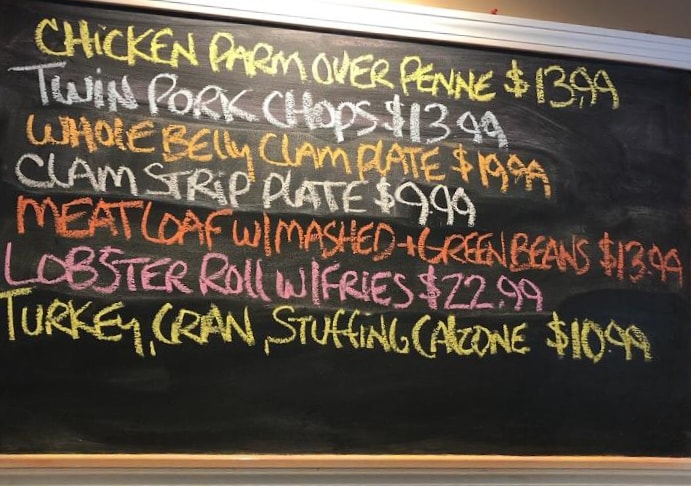 CHICKEN PARM OVER PENNE $13.99
TWIN PORK CHOPS $13.99
WHOLE BELLY CLAM PLATE $19.99
CLAM STRIP PLATE $9.99
MEATLOAF W/MASHED + GREEN BEANS $13.99
LOBSTER ROLL W/FRIES $22.99
TURKEY, CRAN, STUFFING CALZONE $10.99